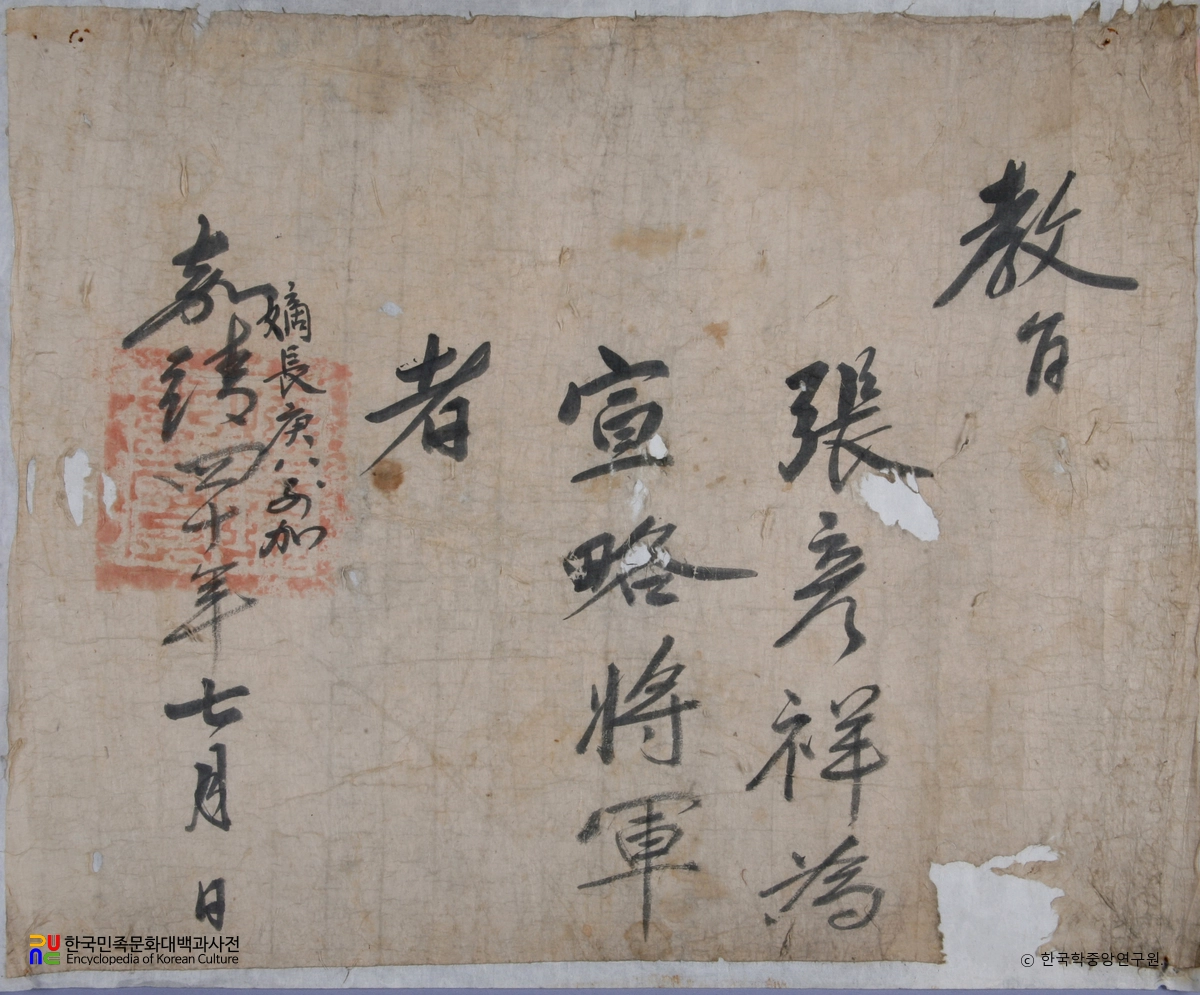 教旨
張彦祥為
宣略將軍
者
嫡長庚八別加
嘉靖四十年七月 日
한국민족문화대백과사전
Encyclopedia of Korean Culture
ⓒ 한국학중앙연구원